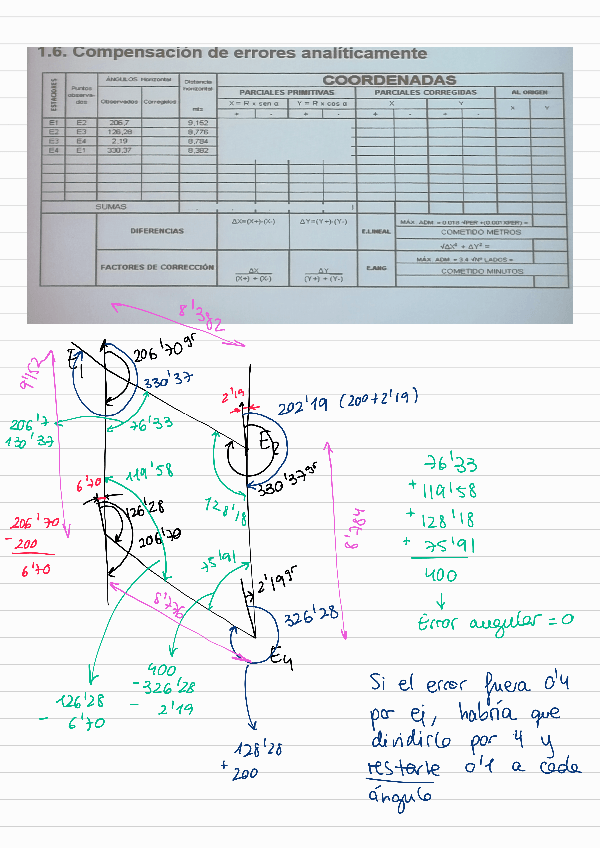 1.6. Compensación de errores analíticamente
ESTACIONES
Puntos observa-dos
ÁNGULOS Horizontal
Observados Corregidos
Distancia horizontal
mts
COORDENADAS
PARCIALES PRIMITIVAS
PARCIALES CORREGIDAS
AL ORIGEN
X = R x sen α
Y = R x cos α
X
Y
X
Y
+ - + - + - + -
E1 E2 206,7 9,152
E2 E3 126,28 8,776
E3 E4 2,19 8,784
E4 E1 330,37 8,382
SUMAS
DIFERENCIAS
ΔX=(X+)-(X-)
ΔY=(Y+)-(Y-)
E.LINEAL
COMETIDO METROS
√ΔX² + ΔY² =
FACTORES DE CORRECCIÓN
ΔX
(X+) + (X-)
ΔY
(Y+) + (Y-)
E.ANG
MÁX. ADM. = 3.4 √Nº LADOS =
COMETIDO MINUTOS
8'382
9'152
E1
206'70 gr
330'37
206'7
130'37
76'33
2'19
202'19 (200+2'19)
E2
330'37 gr
128'18
8'784
119'58
6'70
126'28
206'70
206'70
- 200
6'70
75'91
2'19 gr
8'776
326'28
E4
76'33
+ 119'58
+ 128'18
+ 75'91
400
Error angular = 0
126'28
- 6'70
400
- 326'28
- 2'19
128'28
+ 200
Si el error fuera 0'4
por ej, habría que
dividirlo por 4 y
restarle 0'1 a cada
ángulo